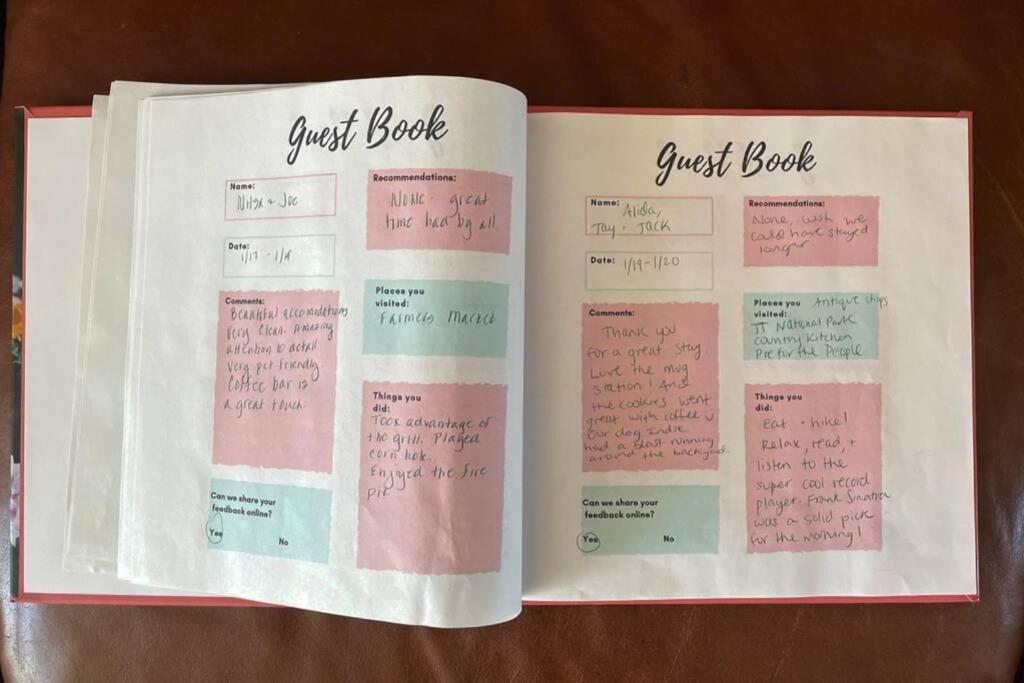 Guest Book
Name:
& Joe
Date:
1/17 - 1/19
Comments:
Beautiful accomodations
very clean. Amazing
attention to detail
very pet friendly.
Coffee bar is
a great touch.
Can we share your
feedback online?
Yes No
Recommendations:
None - great
time had by all.
Places you
visited:
Farmers Market
Things you
did:
Took advantage of
the grill. Played
corn hole.
Enjoyed the fire
pit
Guest Book
Name: Alida,
Jay + Jack
Date: 1/19-1/20
Comments:
Thank you
for a great stay.
Love the mug
station! And
the cookies went
great with coffee
Our dog Indie
had a blast running
around the backyard.
Can we share your
feedback online?
Yes No
Recommendations:
None, wish we
could have stayed
longer.
Places you Antique shops
visited:
National Park
Country Kitchen
Pie for the People
Things you
did:
Eat + hike!
Relax, read, +
listen to the
super cool record
player. Frank Sinatra
was a solid pick
for the morning!